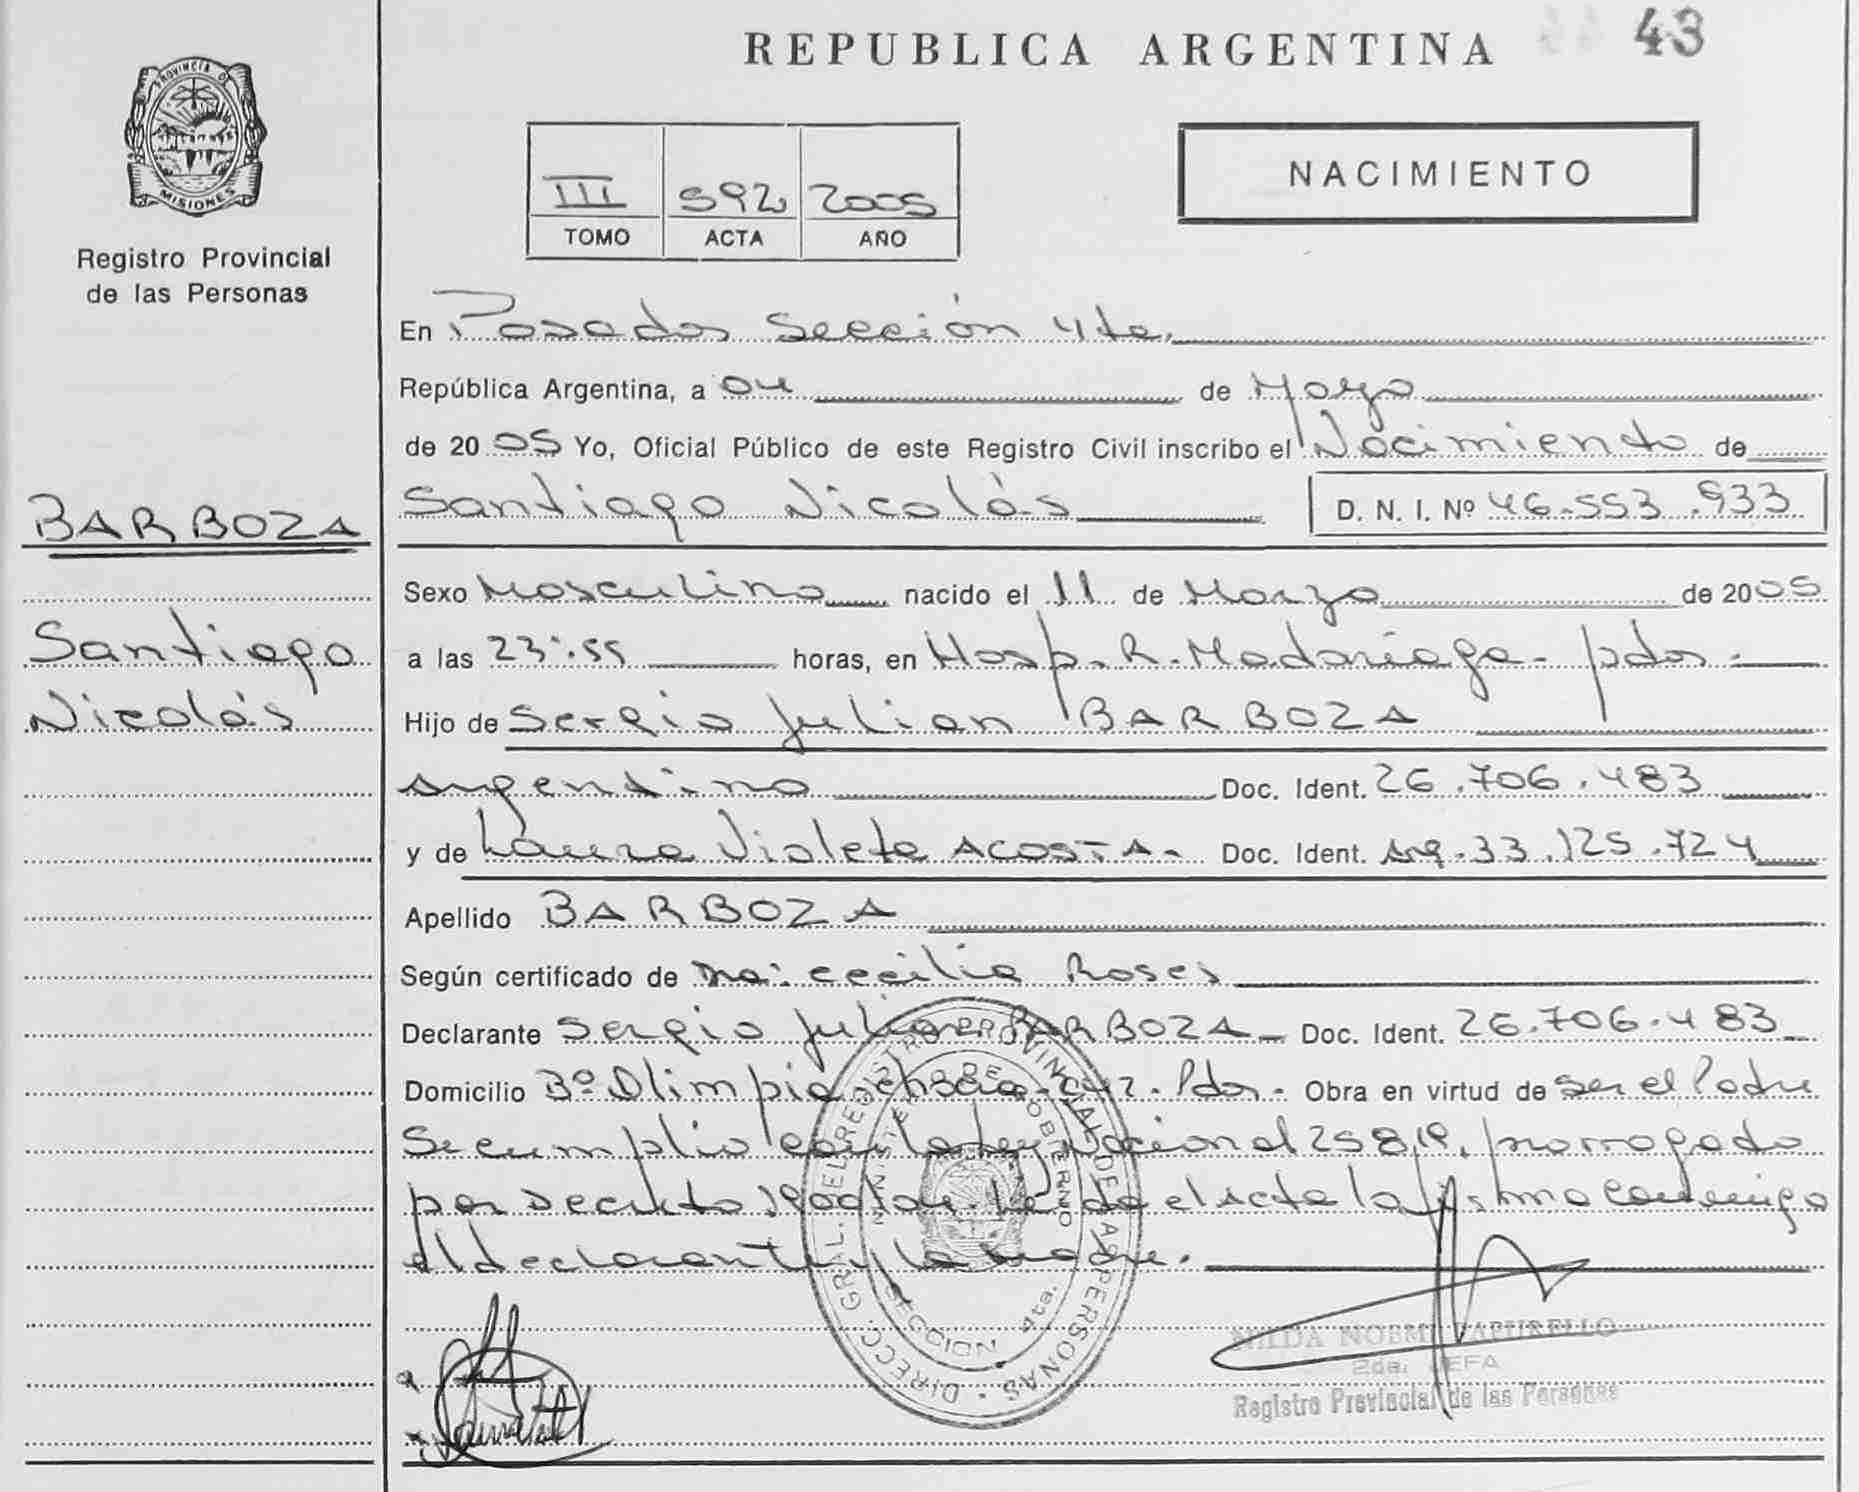 43
REPUBLICA ARGENTINA
PROVINCIA DE
MISIONES
Registro Provincial
de las Personas
III 592 2005
TOMO ACTA AÑO
NACIMIENTO
En Posadas Sección 4ta.
República Argentina, a 04 de Mayo
de 2005 Yo, Oficial Público de este Registro Civil inscribo el Nacimiento de
BARBOZA
Santiago Nicolás
Santiago Nicolás D. N. I. Nº 46.553.933
Sexo Masculino nacido el 11 de Marzo de 2005
a las 23:55 horas, en Hosp. R. Madariaga - pdas -
Hijo de Sergio Julian BARBOZA
argentino Doc. Ident. 26.706.483
y de Laura Violeta ACOSTA - Doc. Ident. arg. 33.125.724
Apellido BARBOZA
Según certificado de Ma: Cecilia Roses
Declarante Sergio Julian BARBOZA - Doc. Ident. 26.706.483
Domicilio Bº Olimpia Pdas - Obra en virtud de ser el Padre
Se cumplio con la ley Nacional 25819, prorrogado
por Decreto el acta la firma conmigo
el declarante y la madre.
DIRECC. GRAL. DEL REGISTRO PROVINCIAL DE LAS PERSONAS
MINISTERIO DE GOBIERNO
SECCION 4ta.
NOEMI
2da. JEFA
Registro Provincial de las Personas